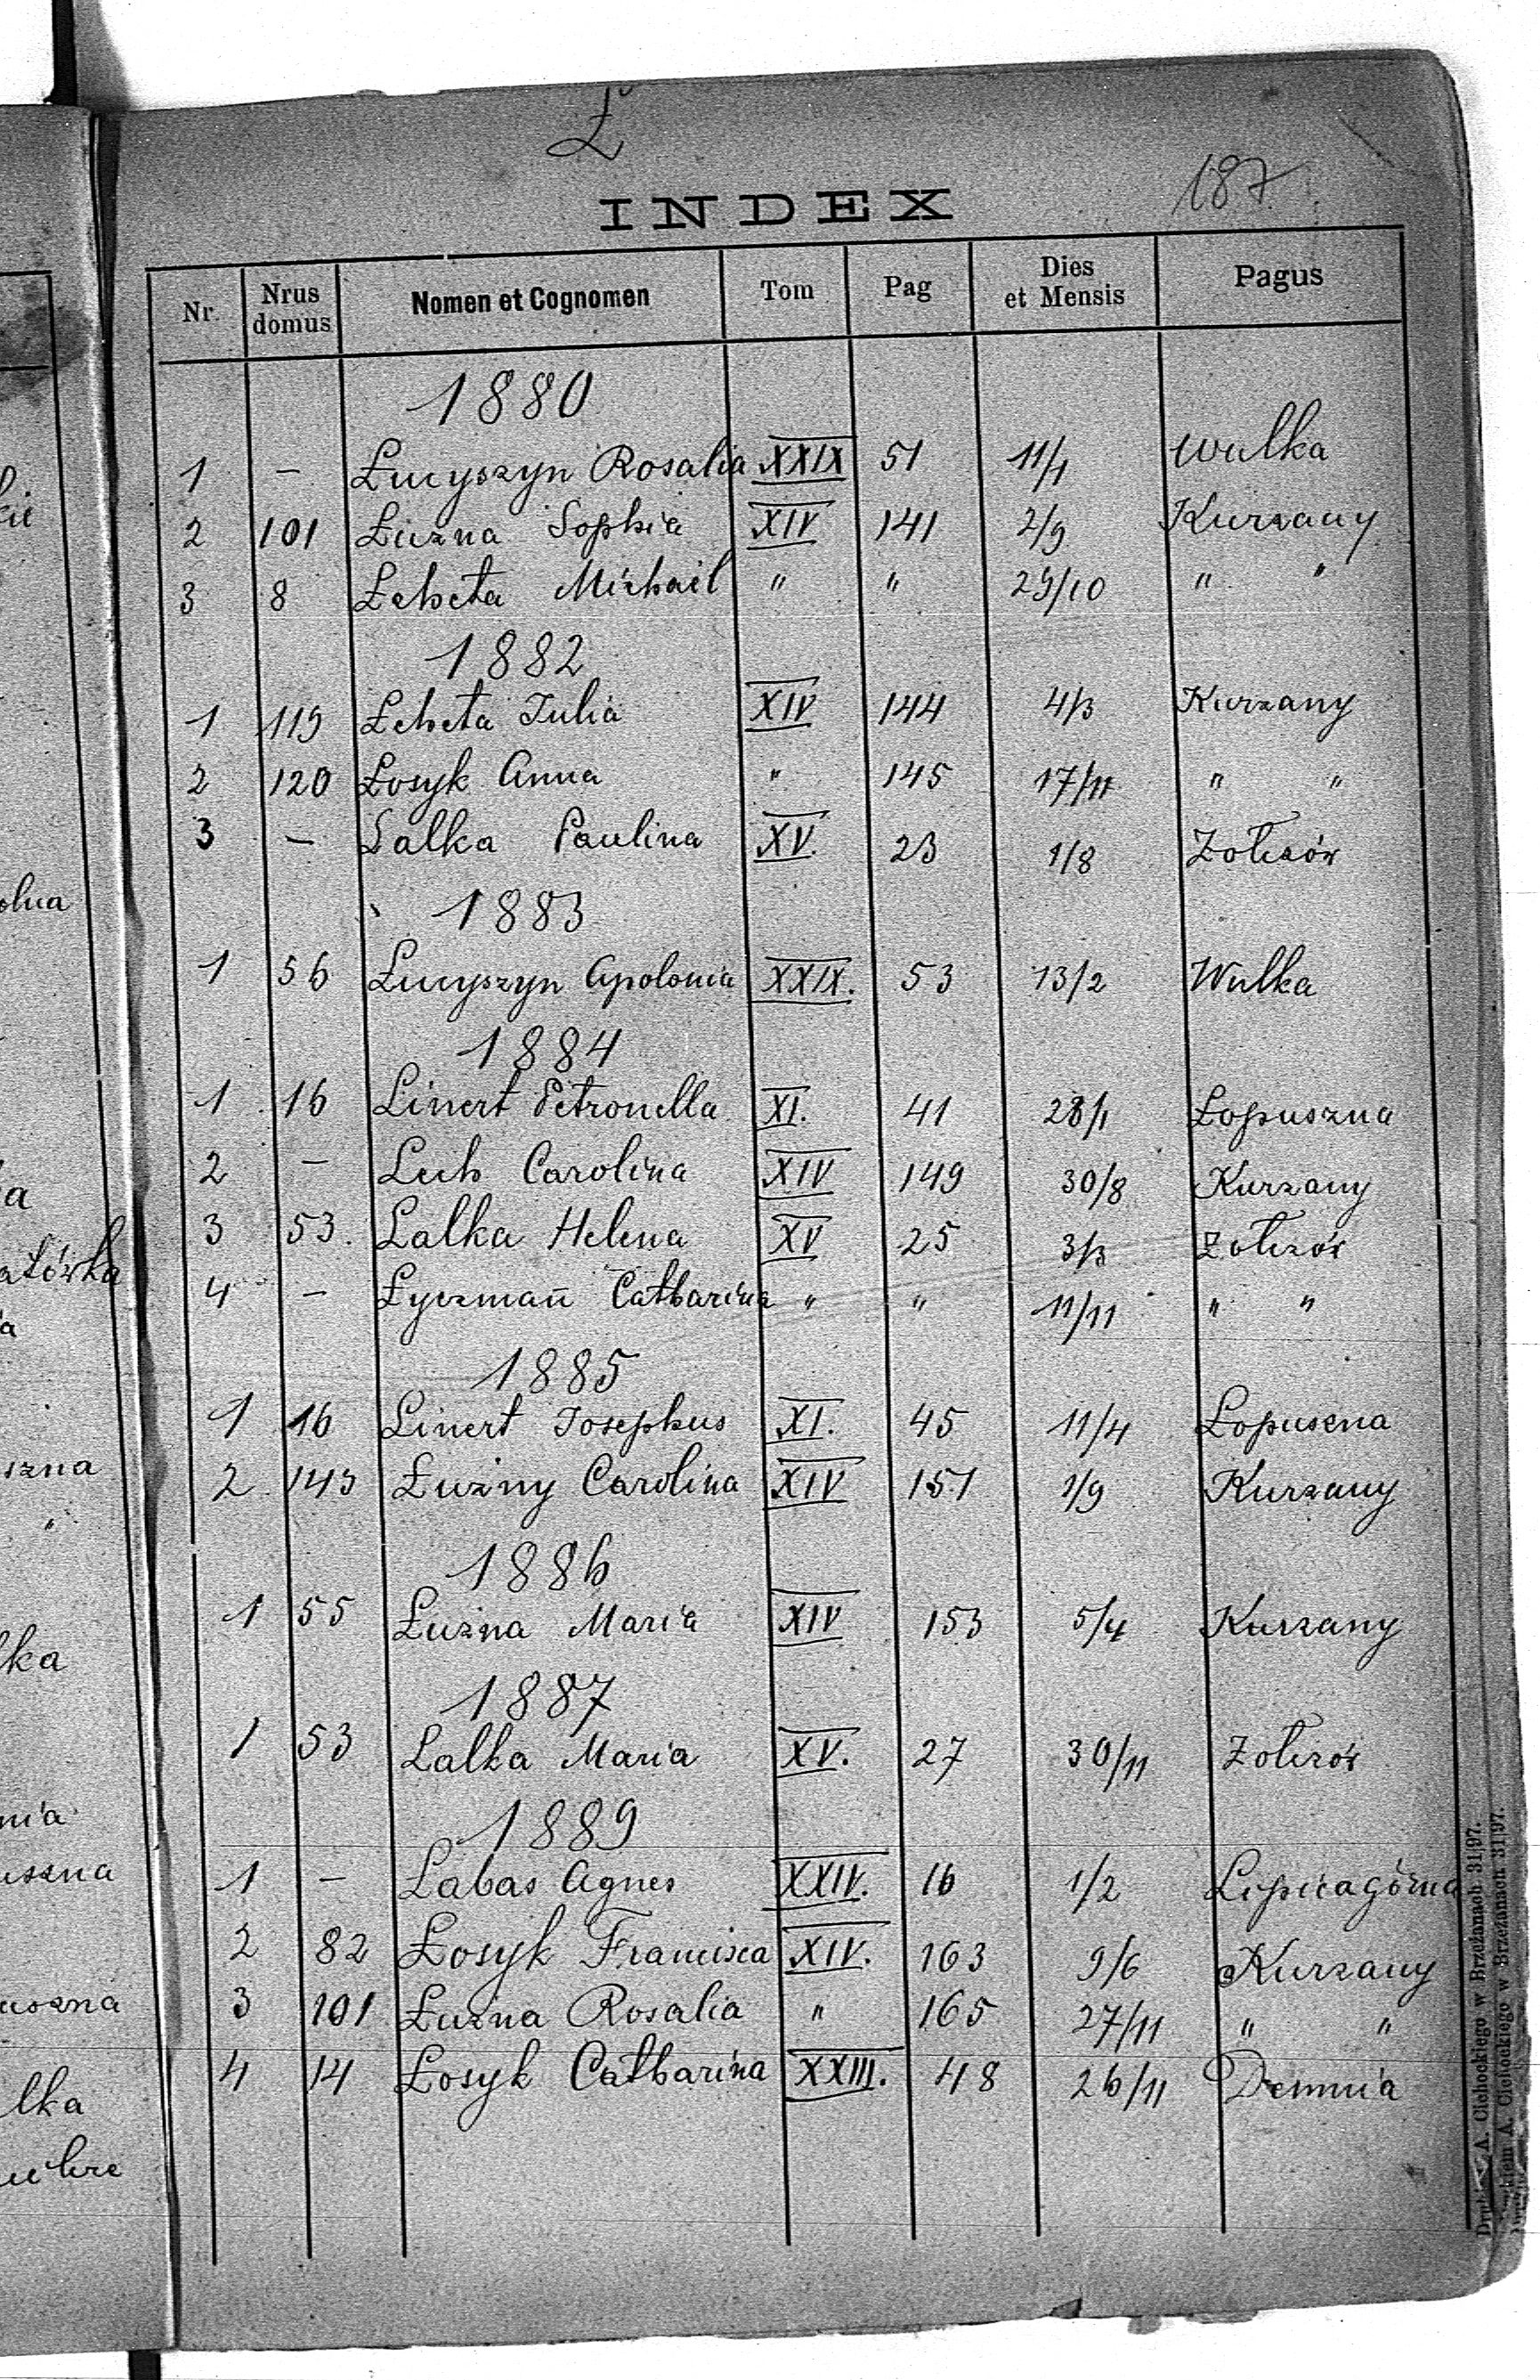 Ł
187.
INDEX
Nr. Nrus domus Nomen et Cognomen Tom Pag Dies et Mensis Pagus
1880
1 — Łucyszyn Rosalia XXIX 51 11/1 Wulka
2 101 Łuzna Sophia XIV 141 2/9 Kurzany
3 8 Łeheta Michail " " 29/10 " "
1882
1 119 Łeheta Julia XIV 144 4/3 Kurzany
2 120 Łosyk Anna " 145 17/11 " "
3 — Lalka Paulina XV. 23 1/8 Żołczów
1883
1 56 Łucyszyn Apolonia XXIX. 53 13/2 Wulka
1884
1 16 Linert Petronella XI. 41 28/1 Łopuszna
2 — Lech Carolina XIV 149 30/8 Kurzany
3 53. Lalka Helena XV 25 3/3 Żołczów
4 — Łyczmań Catharina " " 11/11 " "
1885
1 16 Linert Josephus XI. 45 11/4 Łopuszna
2. 143 Łużny Carolina XIV 151 1/9 Kurzany
1886
1 55 Łużna Maria XIV 153 5/4 Kurzany
1887
1 53 Lalka Maria XV. 27 30/11 Żołczów
1889
1 — Labas Agnes XXIV. 16 1/2 Lipica górna
2 82 Łosyk Francisca XIV. 163 9/6 Kurzany
3 101 Łuzna Rosalia " 165 27/11 " "
4 14 Łosyk Catharina XXIII. 48 26/11 Demnia
A. Cichockiego w Brzeżanach 31|97.
A. Cichockiego w Brzeżanach 31|97.